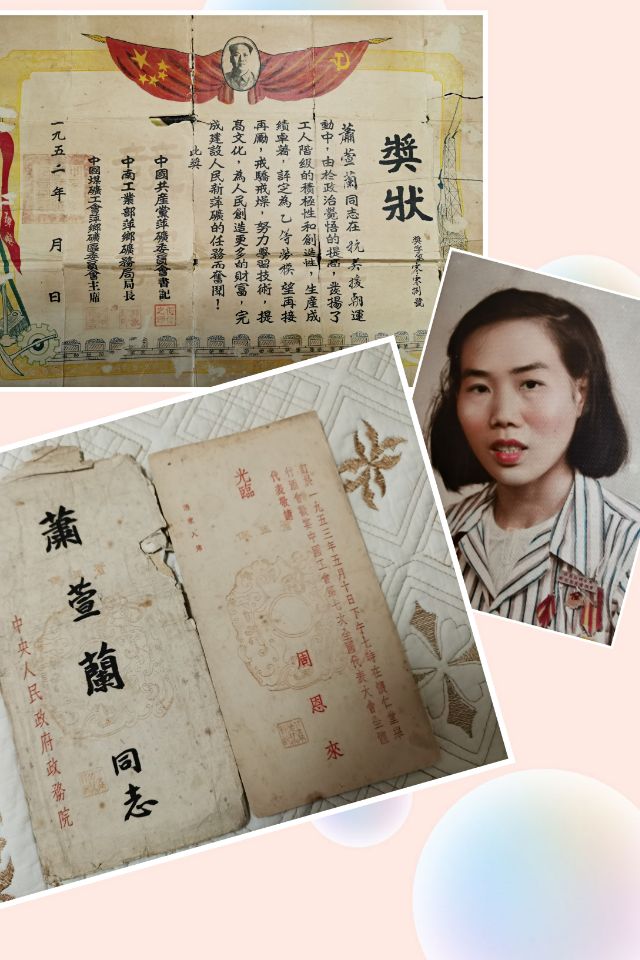 獎狀
蕭萱蘭同志在抗美援朝運
動中，由於政治覺悟的提高，發揚了
工人階級的積極性和創造性，生產成
績卓著，評定為乙等勞模，望再接
再勵，戒驕戒燥，努力學習技術，提
高文化，為人民創造更多的財富，完
成建設人民新萍礦的任務而奮鬥！
此獎
中國共產黨萍礦委員會書記
中南工業部萍鄉礦務局局長
中國煤礦工會萍鄉礦區委員會主席
一九五二年 月 日
蕭萱蘭同志
中央人民政府政務院
訂於一九五三年五月十日下午七時在懷仁堂舉
行酒會歡宴中國工會第七次全國代表大會全體
代表敬請
光臨
周恩來
憑柬入席